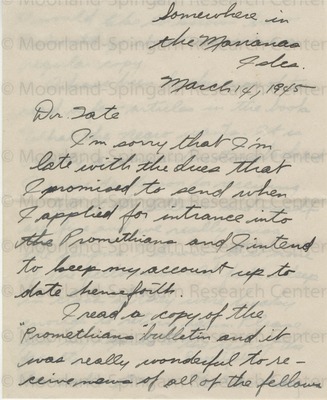 Somewhere in
the Marianas
Isles.
March 14, 1945
Dr. Tate
I'm sorry that I'm
late with the dues that
I promised to send when
I applied for intrance into
the Promethians and I intend
to keep my account up to
date henceforth.
I read a copy of the
"Promethians" bulletin and it
was really wonderful to re-
ceive news of all of the fellows